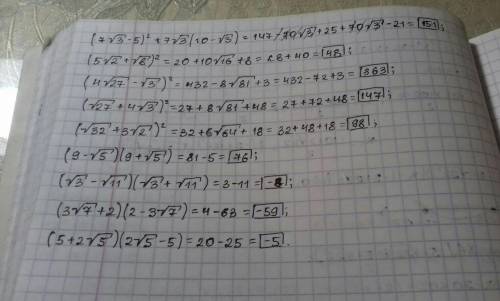 (7√3-5)² + 7√3(10-√3) = 147-70√3+25+70√3-21 = 151;
(5√2+√8)² = 20+10√16+8 = 28+40 = 48;
(4√27-√3)² = 432-8√81+3 = 432-72+3 = 363;
(√27+4√3)² = 27+8√81+48 = 27+72+48 = 147;
(√32+3√2)² = 32+6√64+18 = 32+48+18 = 98;
(9-√5)(9+√5) = 81-5 = 76;
(√3-√11)(√3+√11) = 3-11 = -8;
(3√7+2)(2-3√7) = 4-63 = -59;
(5+2√5)(2√5-5) = 20-25 = -5.